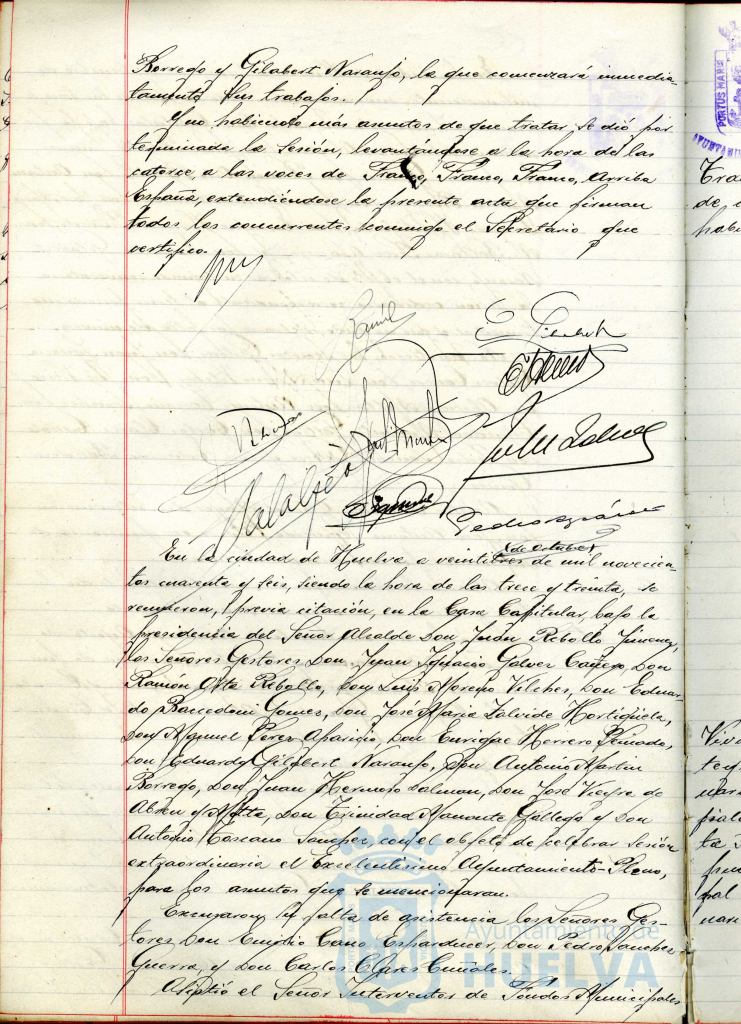 Borrego y Gilabert Naranjo, la que comenzará inmedia-
tamente sus trabajos.
Y no habiendo más asuntos de que tratar, se dió por
terminada la sesión, levantándose a la hora de las
catorce, a las voces de Franco, Franco, Franco, Arriba
España, extendiéndose la presente acta que firman
todos los concurrentes conmigo el Secretario que
certifico.
En la ciudad de Huelva a veintitres de octubre de mil novecien-
tos cuarenta y seis, siendo la hora de las trece y treinta, se
reunieron, previa citación, en la Casa Capitular, bajo la
presidencia del Señor Alcalde Don Juan Rebollo Jimenez,
los Señores Gestores Don Juan Ignacio Galvez Cañego, Don
Ramón Orta Rebollo, Don Luis Moreno Vilches, Don Eduar-
do Gomez, Don José Maria Zalvide Hortigüela,
Don Manuel Perez Aparicio, Don Enrique Herrero Peinado,
Don Eduardo Gilabert Naranjo, Don Antonio Martin
Borrego, Don Juan Hermoso Dalman, Don José Vieyra de
Abreu y Motta, Don Trinidad Gallego y Don
Antonio Toscano Sanchez, con el objeto de celebrar sesión
extraordinaria el Excelentisimo Ayuntamiento-Pleno,
para los asuntos que se mencionaran.
Excusaron su falta de asistencia los Señores Ges-
tores Don Emilio Cano, Don Pedro Sanchez
Guerra, y Don Carlos
Asistió el Señor Interventor de Fondos Municipales
Ayuntamiento de
HUELVA
PORTUS MARIS